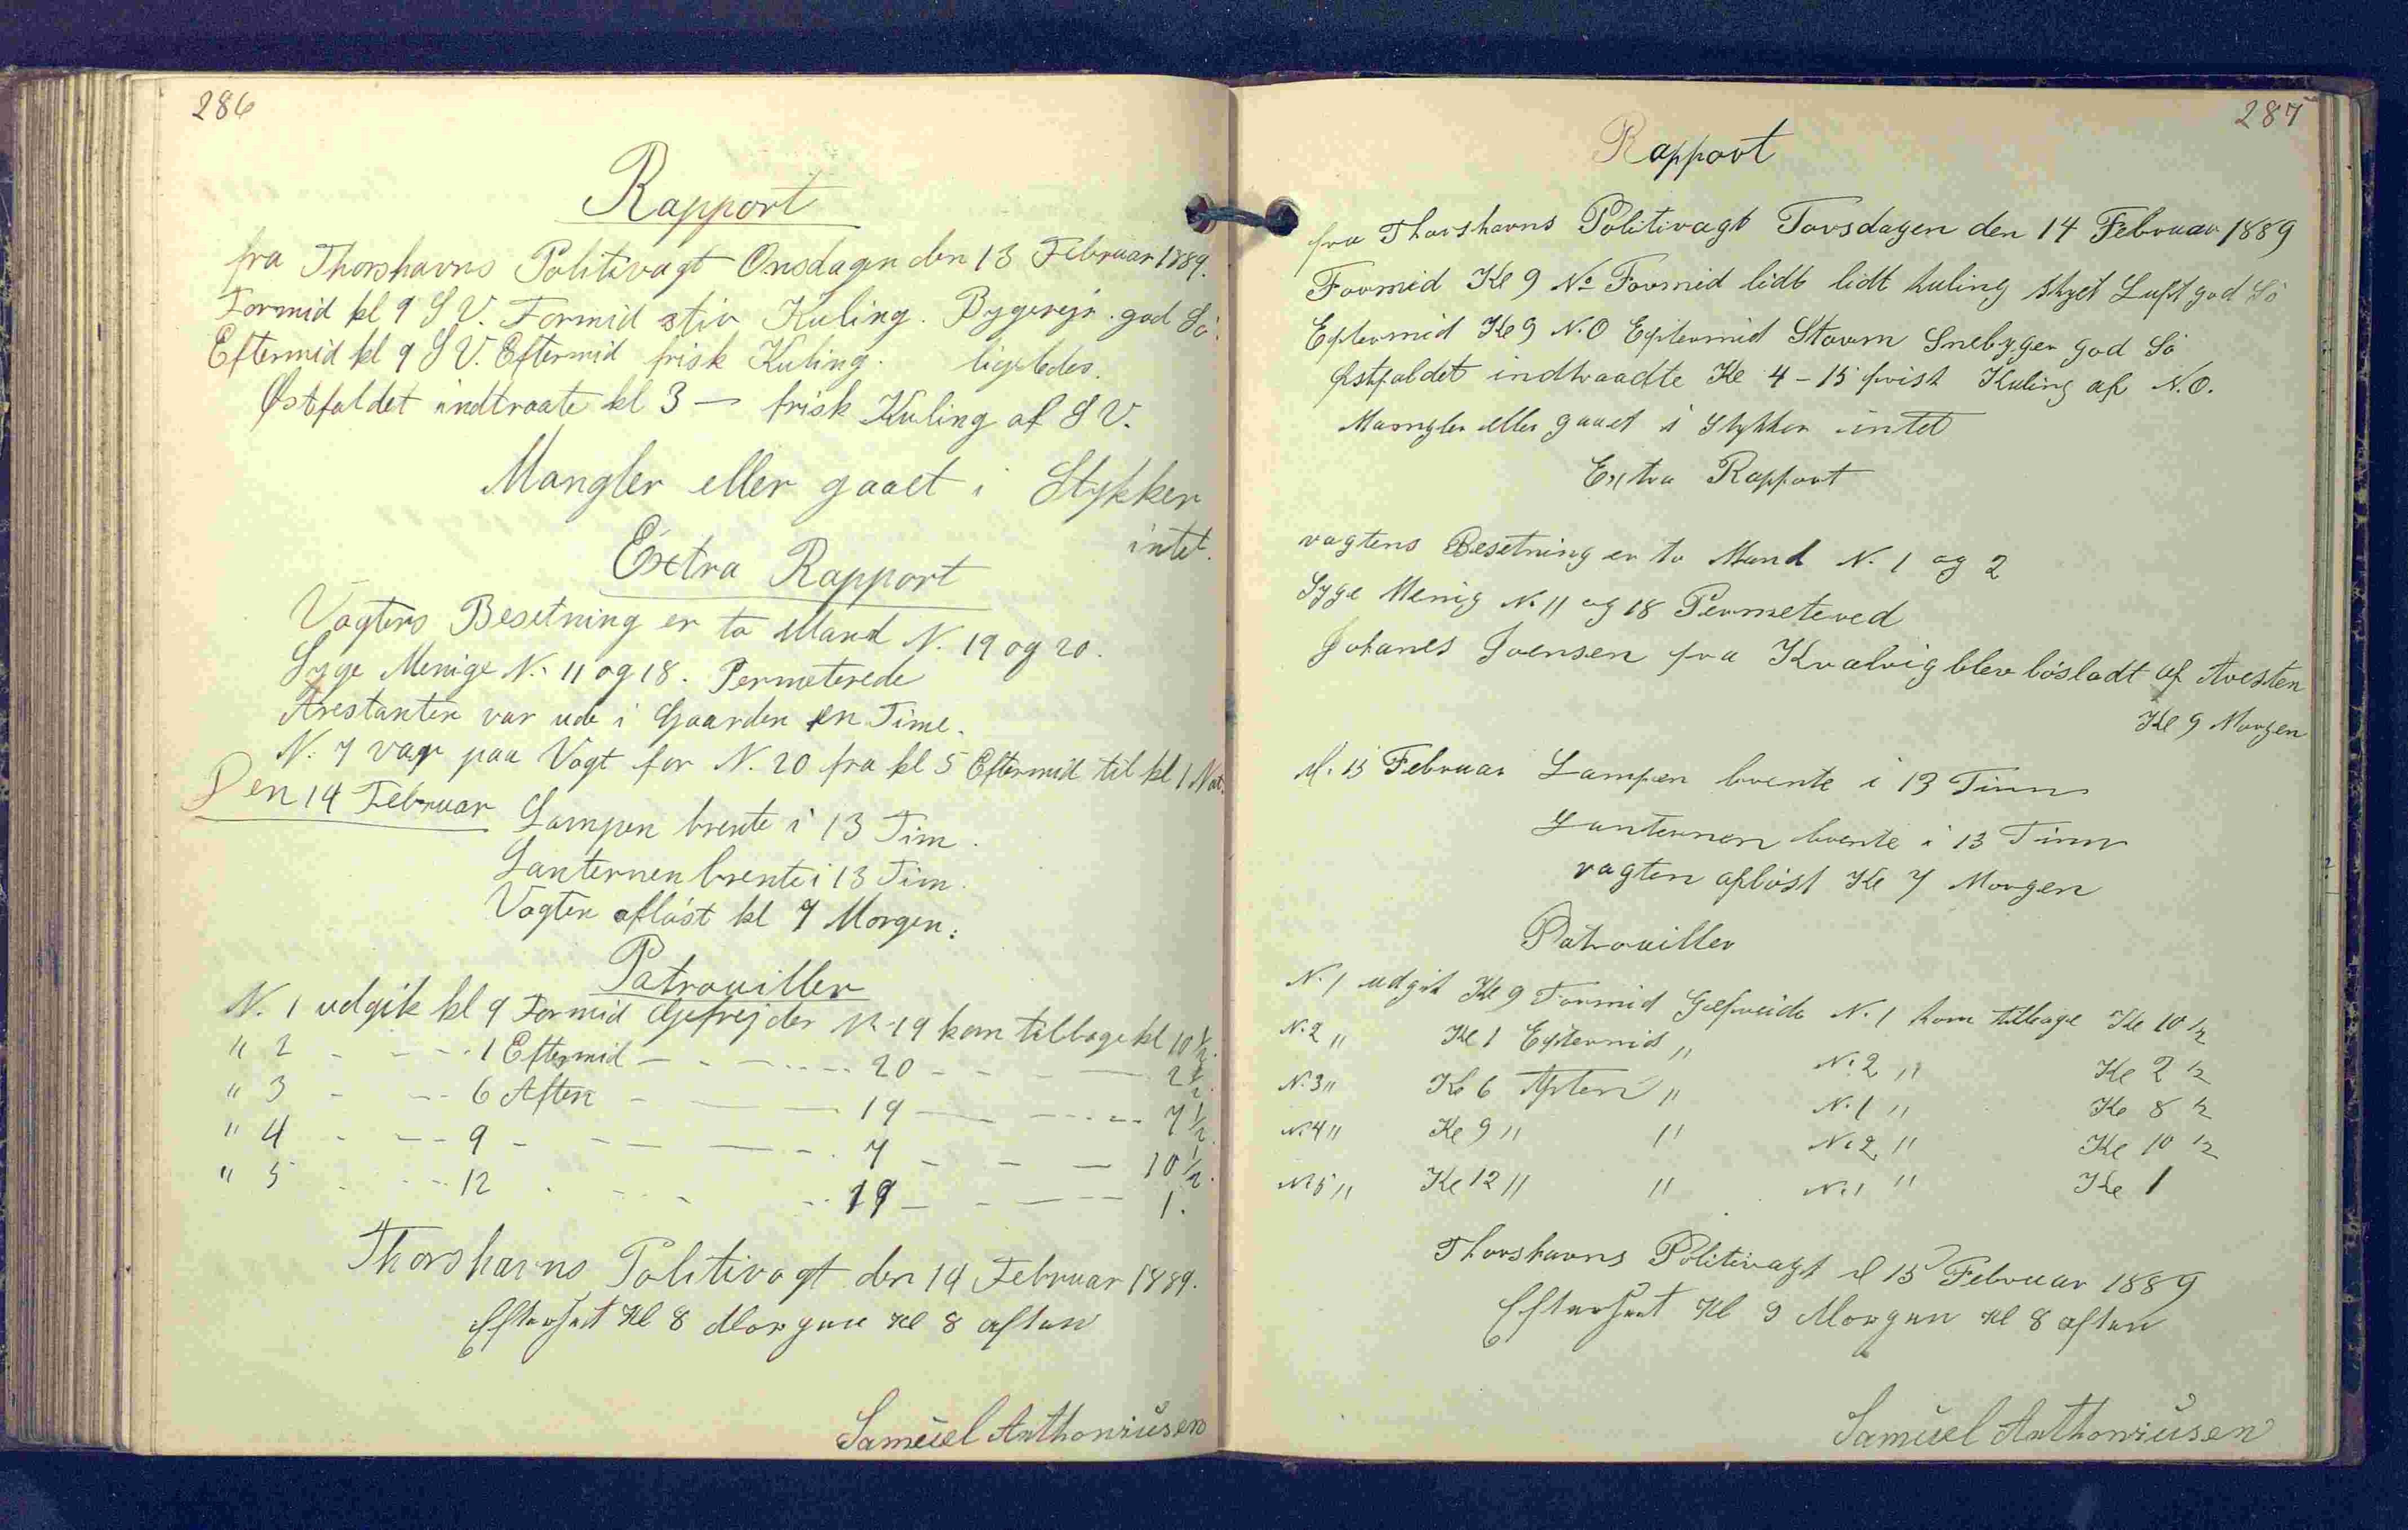 286
Rapport
fra Thorshavns Politivagt Onsdagen den 13 Februar 1889.
Formid kl 9 S V. Formid stiv Kuling. Bygevejr. god Sö.
Eftermid kl 9 S V. Eftermid frisk Kuling. ligeledes.
Østfaldet indtraate kl 3 — frisk Kuling af S V.
Mangler eller gaaet i Stykker
intet.
Extra Rapport
Vagtens Besetning er to Mand N. 19 og 20.
Syge Menige N. 11 og 18. Permeterede
Arestanten var ude i Gaarden en Time.
N. 7 var paa Vagt for N. 20 fra kl 5 Eftermid til kl 1 Nat.
Den 14 Februar Lampen brente i 13 Tim.
Lanternen brente i 13 Tim.
Vagten aflöst kl 7 Morgen.
Patrouiller
N. 1 udgik kl 9 Formid N. 19 kom tilbage kl 10 1/2.
" 2 - - - 1 Eftermid - - - 20 - - - 2 1/2.
" 3 - - - 6 Aften - - - 19 - - - 7 1/2.
" 4 - - - 9 - - - 7 - - - 10 1/2.
" 5 - - - 12 - - - 19 - - - 1.
Thorshavns Politivagt den 14 Februar 1889.
Efterseet Kl 8 Morgen Kl 8 aften
Samuel Anthoniusen
287
Rapport
fra Thorshavns Politivagt Torsdagen den 14 Februar 1889
Formid Kl 9 No Formid lidt lidt kuling skyet Luft god Sö
Eftermid Kl 9 N.O Eftermid Storm Snebyger god Sö
østfaldet indtraadte Kl 4-15 frisk Kuling af N.O.
Mangler eller gaaet i Stykker intet
Extra Rapport
vagtens Besetning er to Mand N. 1 og 2
Syge Menig N. 11 og 18 Permetered
Johanes Joensen fra Kvalvig blev lösladt af Aresten
Kl 9 Morgen
d. 15 Februar Lampen brente i 13 Timr
Lanternen brente i 13 Timr
vagten aflöst Kl 7 Morgen
Patrouiller
N. 1 udgik Kl 9 Formid N. 1 kom tilbage Kl 10 1/2
N. 2 " Kl 1 Eftermid " N. 2 " Kl 2 1/2
N. 3 " Kl 6 Aften " N. 1 " Kl 8 1/2
N. 4 " Kl 9 " " N. 2 " Kl 10 1/2
N. 5 " Kl 12 " " N. 1 " Kl 1
Thorshavns Politivagt d 15 Februar 1889
Efterseet Kl 9 Morgen Kl 8 aften
Samuel Anthoniusen